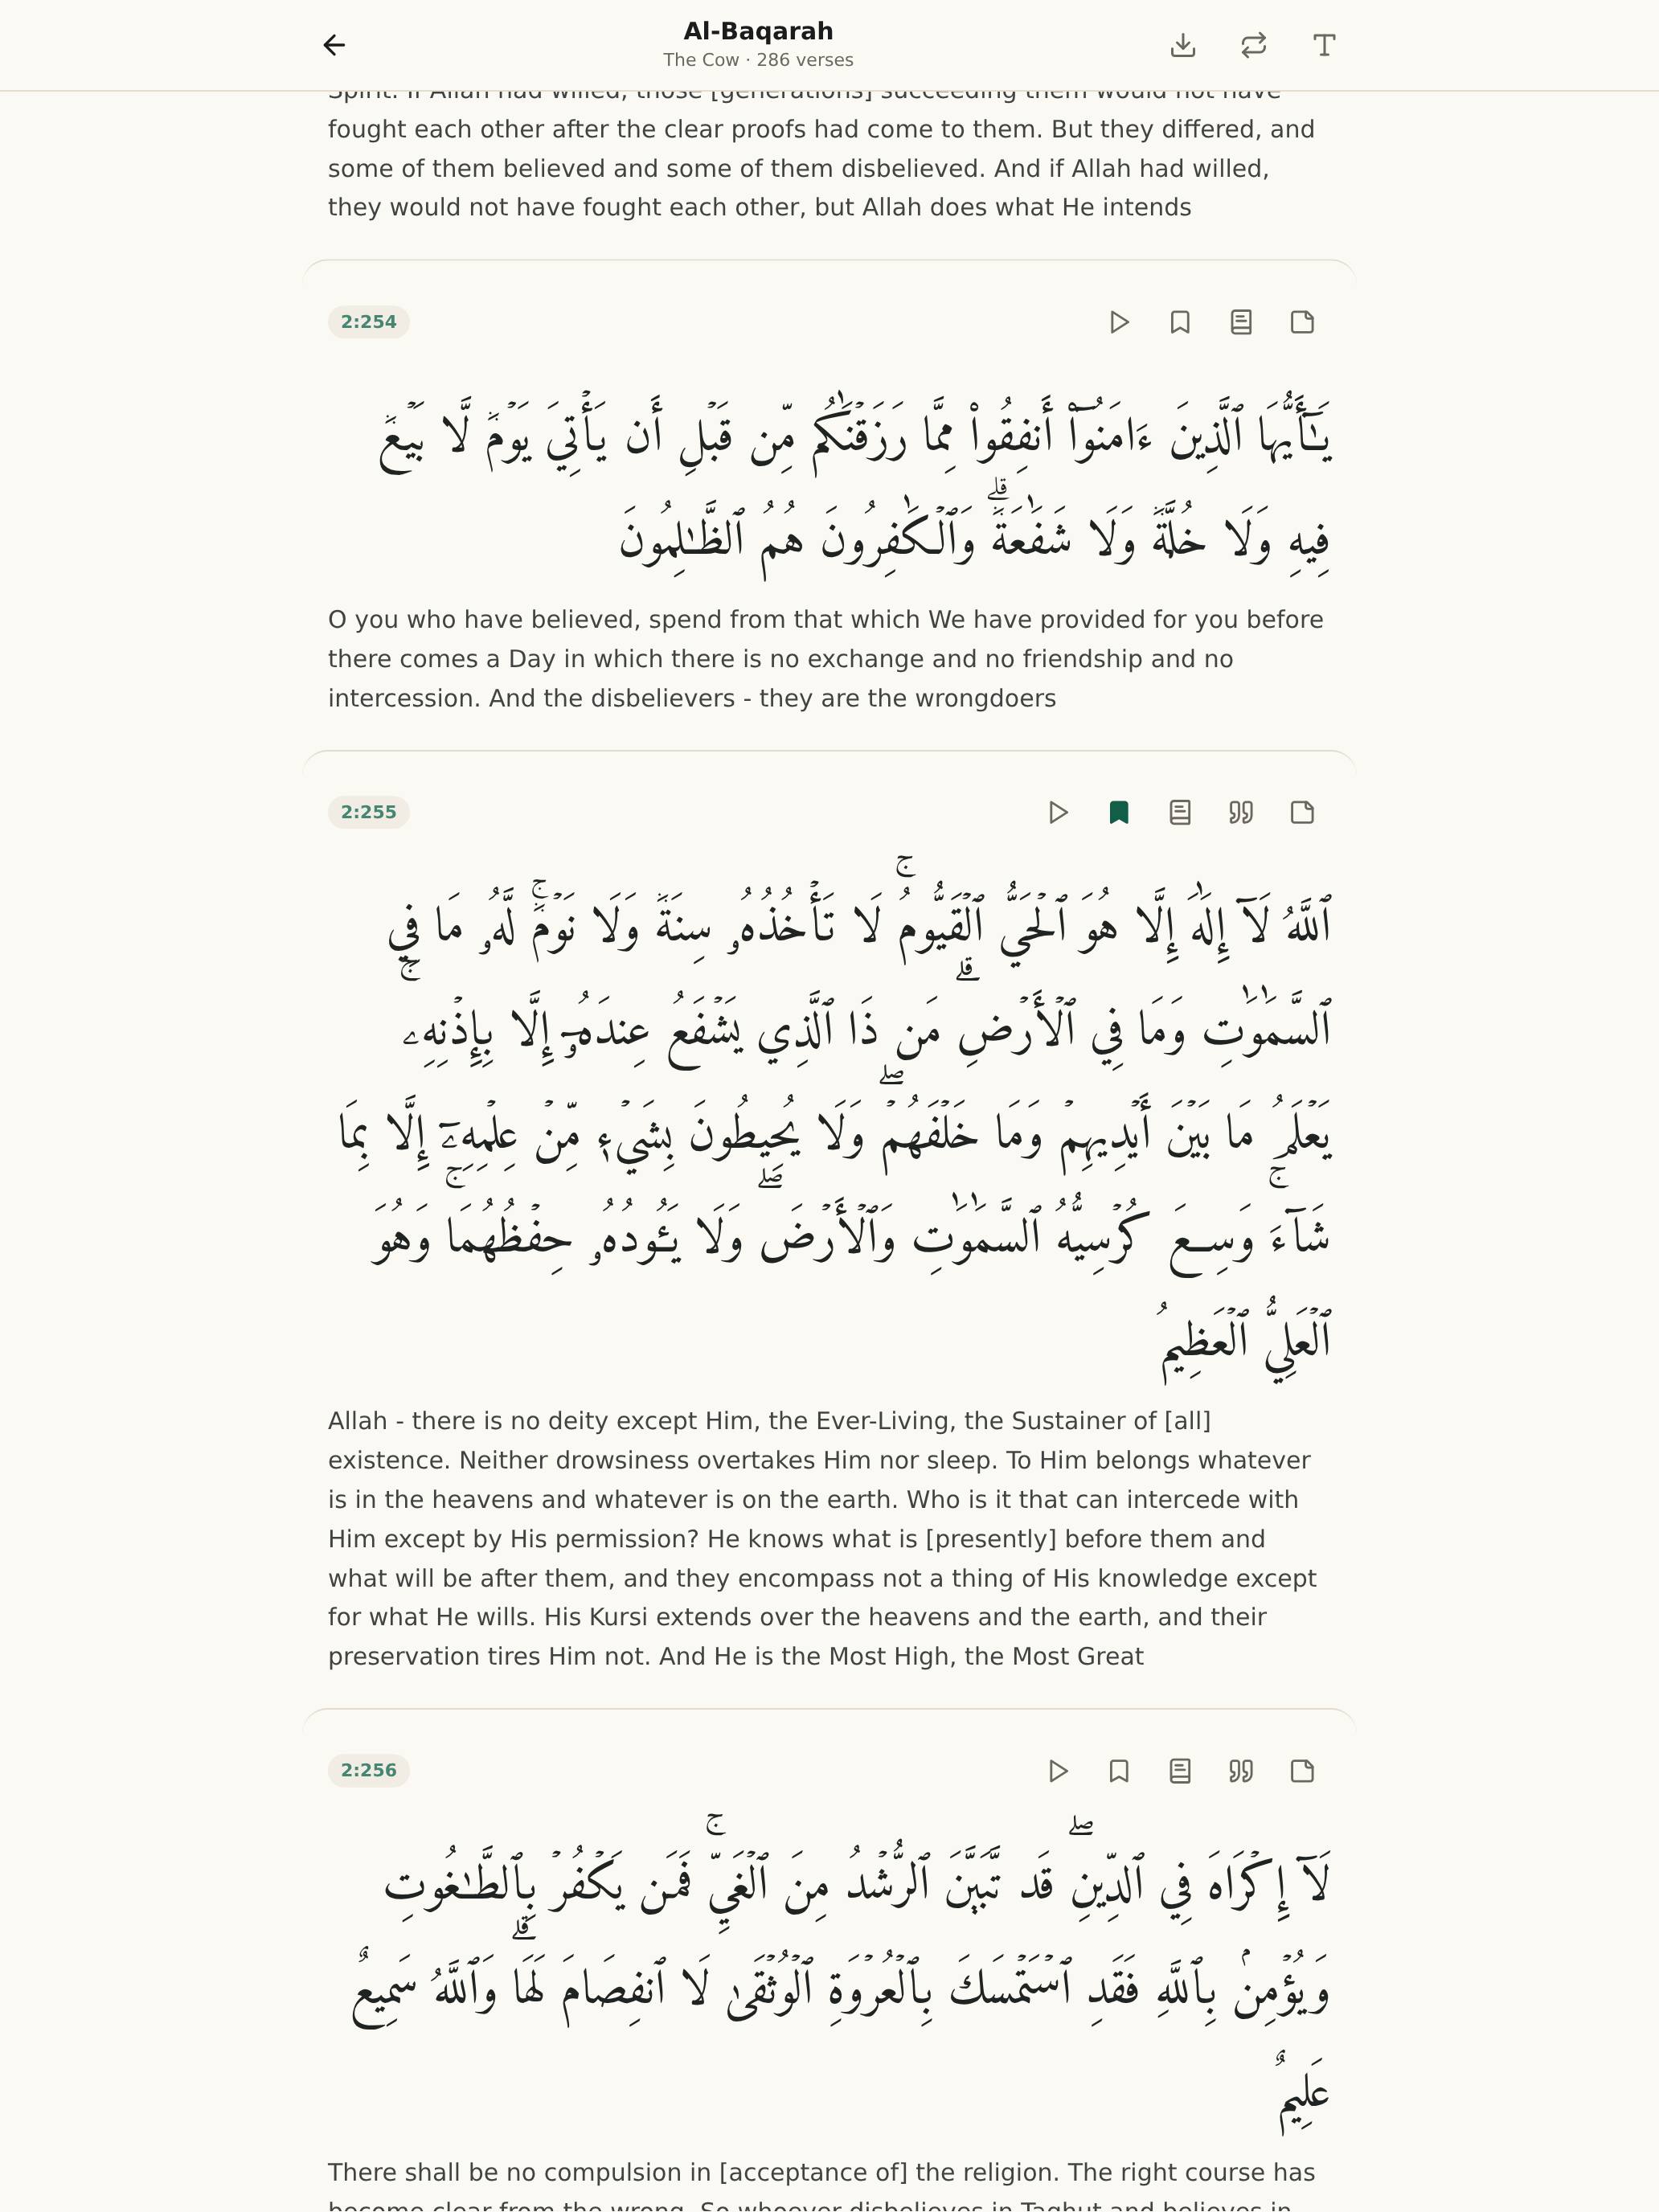 Al-Baqarah
The Cow · 286 verses
Spirit. If Allah had willed, those [generations] succeeding them would not have
fought each other after the clear proofs had come to them. But they differed, and
some of them believed and some of them disbelieved. And if Allah had willed,
they would not have fought each other, but Allah does what He intends
2:254
يَـٰٓأَيُّهَا ٱلَّذِينَ ءَامَنُوٓا۟ أَنفِقُوا۟ مِمَّا رَزَقْنَـٰكُم مِّن قَبْلِ أَن يَأْتِيَ يَوْمٌ لَّا بَيْعٌ
فِيهِ وَلَا خُلَّةٌ وَلَا شَفَـٰعَةٌ ۗ وَٱلْكَـٰفِرُونَ هُمُ ٱلظَّـٰلِمُونَ
O you who have believed, spend from that which We have provided for you before
there comes a Day in which there is no exchange and no friendship and no
intercession. And the disbelievers - they are the wrongdoers
2:255
ٱللَّهُ لَآ إِلَـٰهَ إِلَّا هُوَ ٱلْحَيُّ ٱلْقَيُّومُ ۚ لَا تَأْخُذُهُۥ سِنَةٌ وَلَا نَوْمٌ ۚ لَّهُۥ مَا فِي
ٱلسَّمَـٰوَٰتِ وَمَا فِي ٱلْأَرْضِ ۗ مَن ذَا ٱلَّذِي يَشْفَعُ عِندَهُۥٓ إِلَّا بِإِذْنِهِۦ ۚ
يَعْلَمُ مَا بَيْنَ أَيْدِيهِمْ وَمَا خَلْفَهُمْ ۖ وَلَا يُحِيطُونَ بِشَيْءٍ مِّنْ عِلْمِهِۦٓ إِلَّا بِمَا
شَآءَ ۚ وَسِعَ كُرْسِيُّهُ ٱلسَّمَـٰوَٰتِ وَٱلْأَرْضَ ۖ وَلَا يَـُٔودُهُۥ حِفْظُهُمَا ۚ وَهُوَ
ٱلْعَلِيُّ ٱلْعَظِيمُ
Allah - there is no deity except Him, the Ever-Living, the Sustainer of [all]
existence. Neither drowsiness overtakes Him nor sleep. To Him belongs whatever
is in the heavens and whatever is on the earth. Who is it that can intercede with
Him except by His permission? He knows what is [presently] before them and
what will be after them, and they encompass not a thing of His knowledge except
for what He wills. His Kursi extends over the heavens and the earth, and their
preservation tires Him not. And He is the Most High, the Most Great
2:256
لَآ إِكْرَاهَ فِي ٱلدِّينِ ۖ قَد تَّبَيَّنَ ٱلرُّشْدُ مِنَ ٱلْغَيِّ ۚ فَمَن يَكْفُرْ بِٱلطَّـٰغُوتِ
وَيُؤْمِنۢ بِٱللَّهِ فَقَدِ ٱسْتَمْسَكَ بِٱلْعُرْوَةِ ٱلْوُثْقَىٰ لَا ٱنفِصَامَ لَهَا ۗ وَٱللَّهُ سَمِيعٌ
عَلِيمٌ
There shall be no compulsion in [acceptance of] the religion. The right course has
become clear from the wrong. So whoever disbelieves in Taghut and believes in